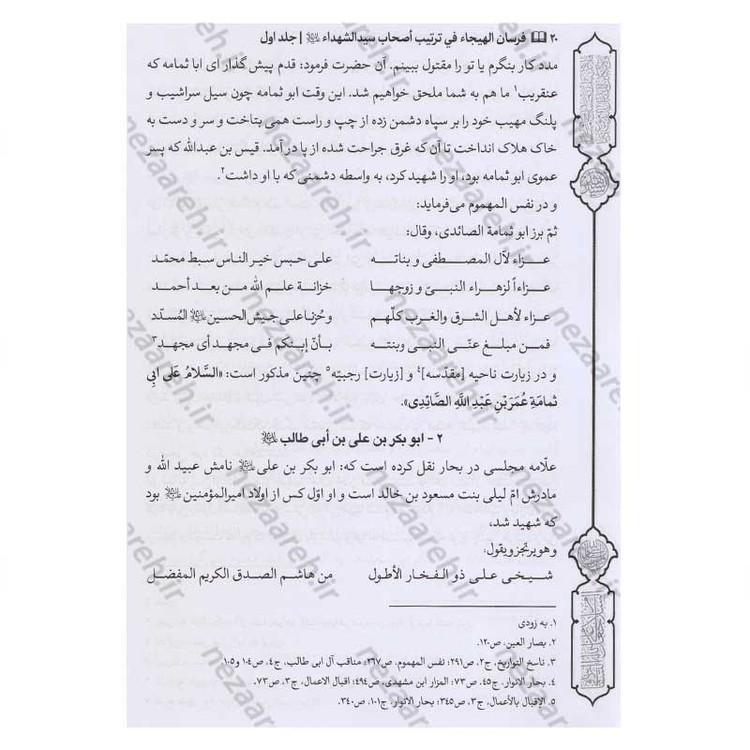 ۲۰ فرسان الهیجاء في ترتیب أصحاب سیدالشهداء | جلد اول
مدد کار بنگرم یا تو را مقتول ببینم. آن حضرت فرمود: قدم پیش گذار ای ابا ثمامه که
عنقریب۱ ما هم به شما ملحق خواهیم شد. این وقت ابو ثمامه چون سیل سراشیب و
پلنگ مهیب خود را بر سپاه دشمن زده از چپ و راست همی بتاخت و سر و دست به
خاک هلاک انداخت تا آن که غرق جراحت شده از پا در آمد. قیس بن عبدالله که پسر
عموی ابو ثمامه بود، او را شهید کرد، به واسطه دشمنی که با او داشت۲.
و در نفس المهموم می‌فرماید:
ثمّ برز ابو ثمامة الصائدی، وقال:
عزاء لآل المصطفی و بناته علی حبس خیر الناس سبط محمّد
عزاءاً لزهراء النبیّ و زوجها خزانة علم الله من بعد أحمد
عزاء لأهل الشرق والغرب کلّهم وحُزنا علی جیش الحسین المُسدّد
فمن مبلغ عنّی النبی وبنته بأنّ إبنکم فی مجهد أی مجهد۳
و در زیارت ناحیه [مقدّسه]۴ و [زیارت] رجبیّه۵ چنین مذکور است: «السَّلامُ عَلی ابی
ثمامَةِ عُمَرَ بْنِ عَبْدِ اللَّهِ الصَّائِدِی».
۲- ابو بکر بن علی بن أبی طالب
علّامه مجلسی در بحار نقل کرده است که: ابو بکر بن علی نامش عبید الله و
مادرش امّ لیلی بنت مسعود بن خالد است و او اوّل کس از اولاد امیرالمؤمنین بود
که شهید شد،
وهو یرتجز و یقول:
شیخی علی ذو الفخار الأطول من هاشم الصدق الکریم المفضل
۱. به زودی
۲. بصار العین، ص۱۲۰.
۳. ناسخ التواریخ، ج۲، ص۲۹۱؛ نفس المهموم، ص۲۶۷؛ مناقب آل ابی طالب، ج۴، ص۱۰۴ و ۱۰۵
۴. بحار الانوار، ج۴۵، ص۷۳؛ المزار ابن مشهدی، ص۴۹۴؛ اقبال الاعمال، ج۳، ص۷۳.
۵. الإقبال بالأعمال، ج۳، ص۳۴۵؛ بحار الأنوار، ج۱۰۱، ص۳۴۰.
nezaareh.ir